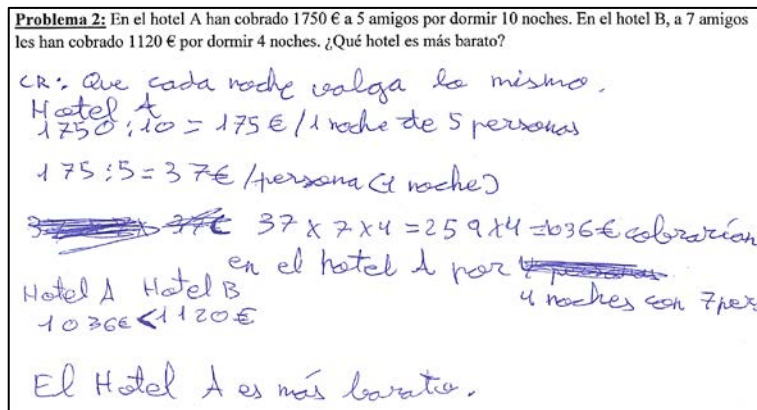 Problema 2: En el hotel A han cobrado 1750 € a 5 amigos por dormir 10 noches. En el hotel B, a 7 amigos
les han cobrado 1120 € por dormir 4 noches. ¿Qué hotel es más barato?
CR: Que cada noche valga lo mismo.
Hotel A
1750:10 = 175 € / 1 noche de 5 personas
175:5 = 37€ /persona (1 noche)
37 x 7 x 4 = 259 x 4 = 1036 € cobrarían
en el hotel A por
4 noches con 7 pers
Hotel A Hotel B
1036€ < 1120€
El Hotel A es más barato.